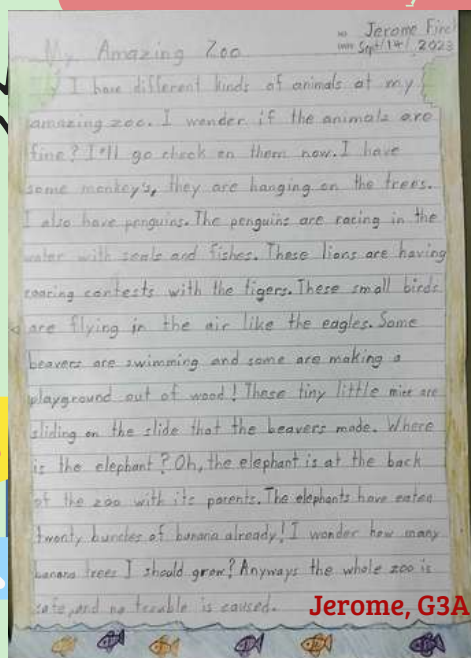 Jerome Finch
My Amazing Zoo
NO
DATE Sept/14/2023
I have different kinds of animals at my
amazing zoo. I wonder if the animals are
fine? I'll go check on them now. I have
some monkey's, they are hanging on the trees.
I also have penguins. The penguins are racing in the
water with seals and fishes. These lions are having
roaring contests with the tigers. These small birds
are flying in the air like the eagles. Some
beavers are swimming and some are making a
playground out of wood! These tiny little mice are
sliding on the slide that the beavers made. Where
is the elephant? Oh, the elephant is at the back
of the zoo with its parents. The elephants have eaten
twenty bunches of banana already! I wonder how many
banana trees I should grow? Anyways the whole zoo is
safe, and no trouble is caused.
Jerome, G3A